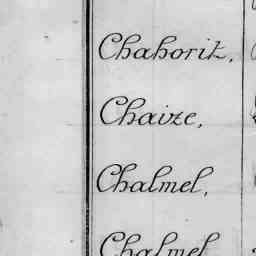 Chahorit,
Chaize,
Chalmel,
Chalmel